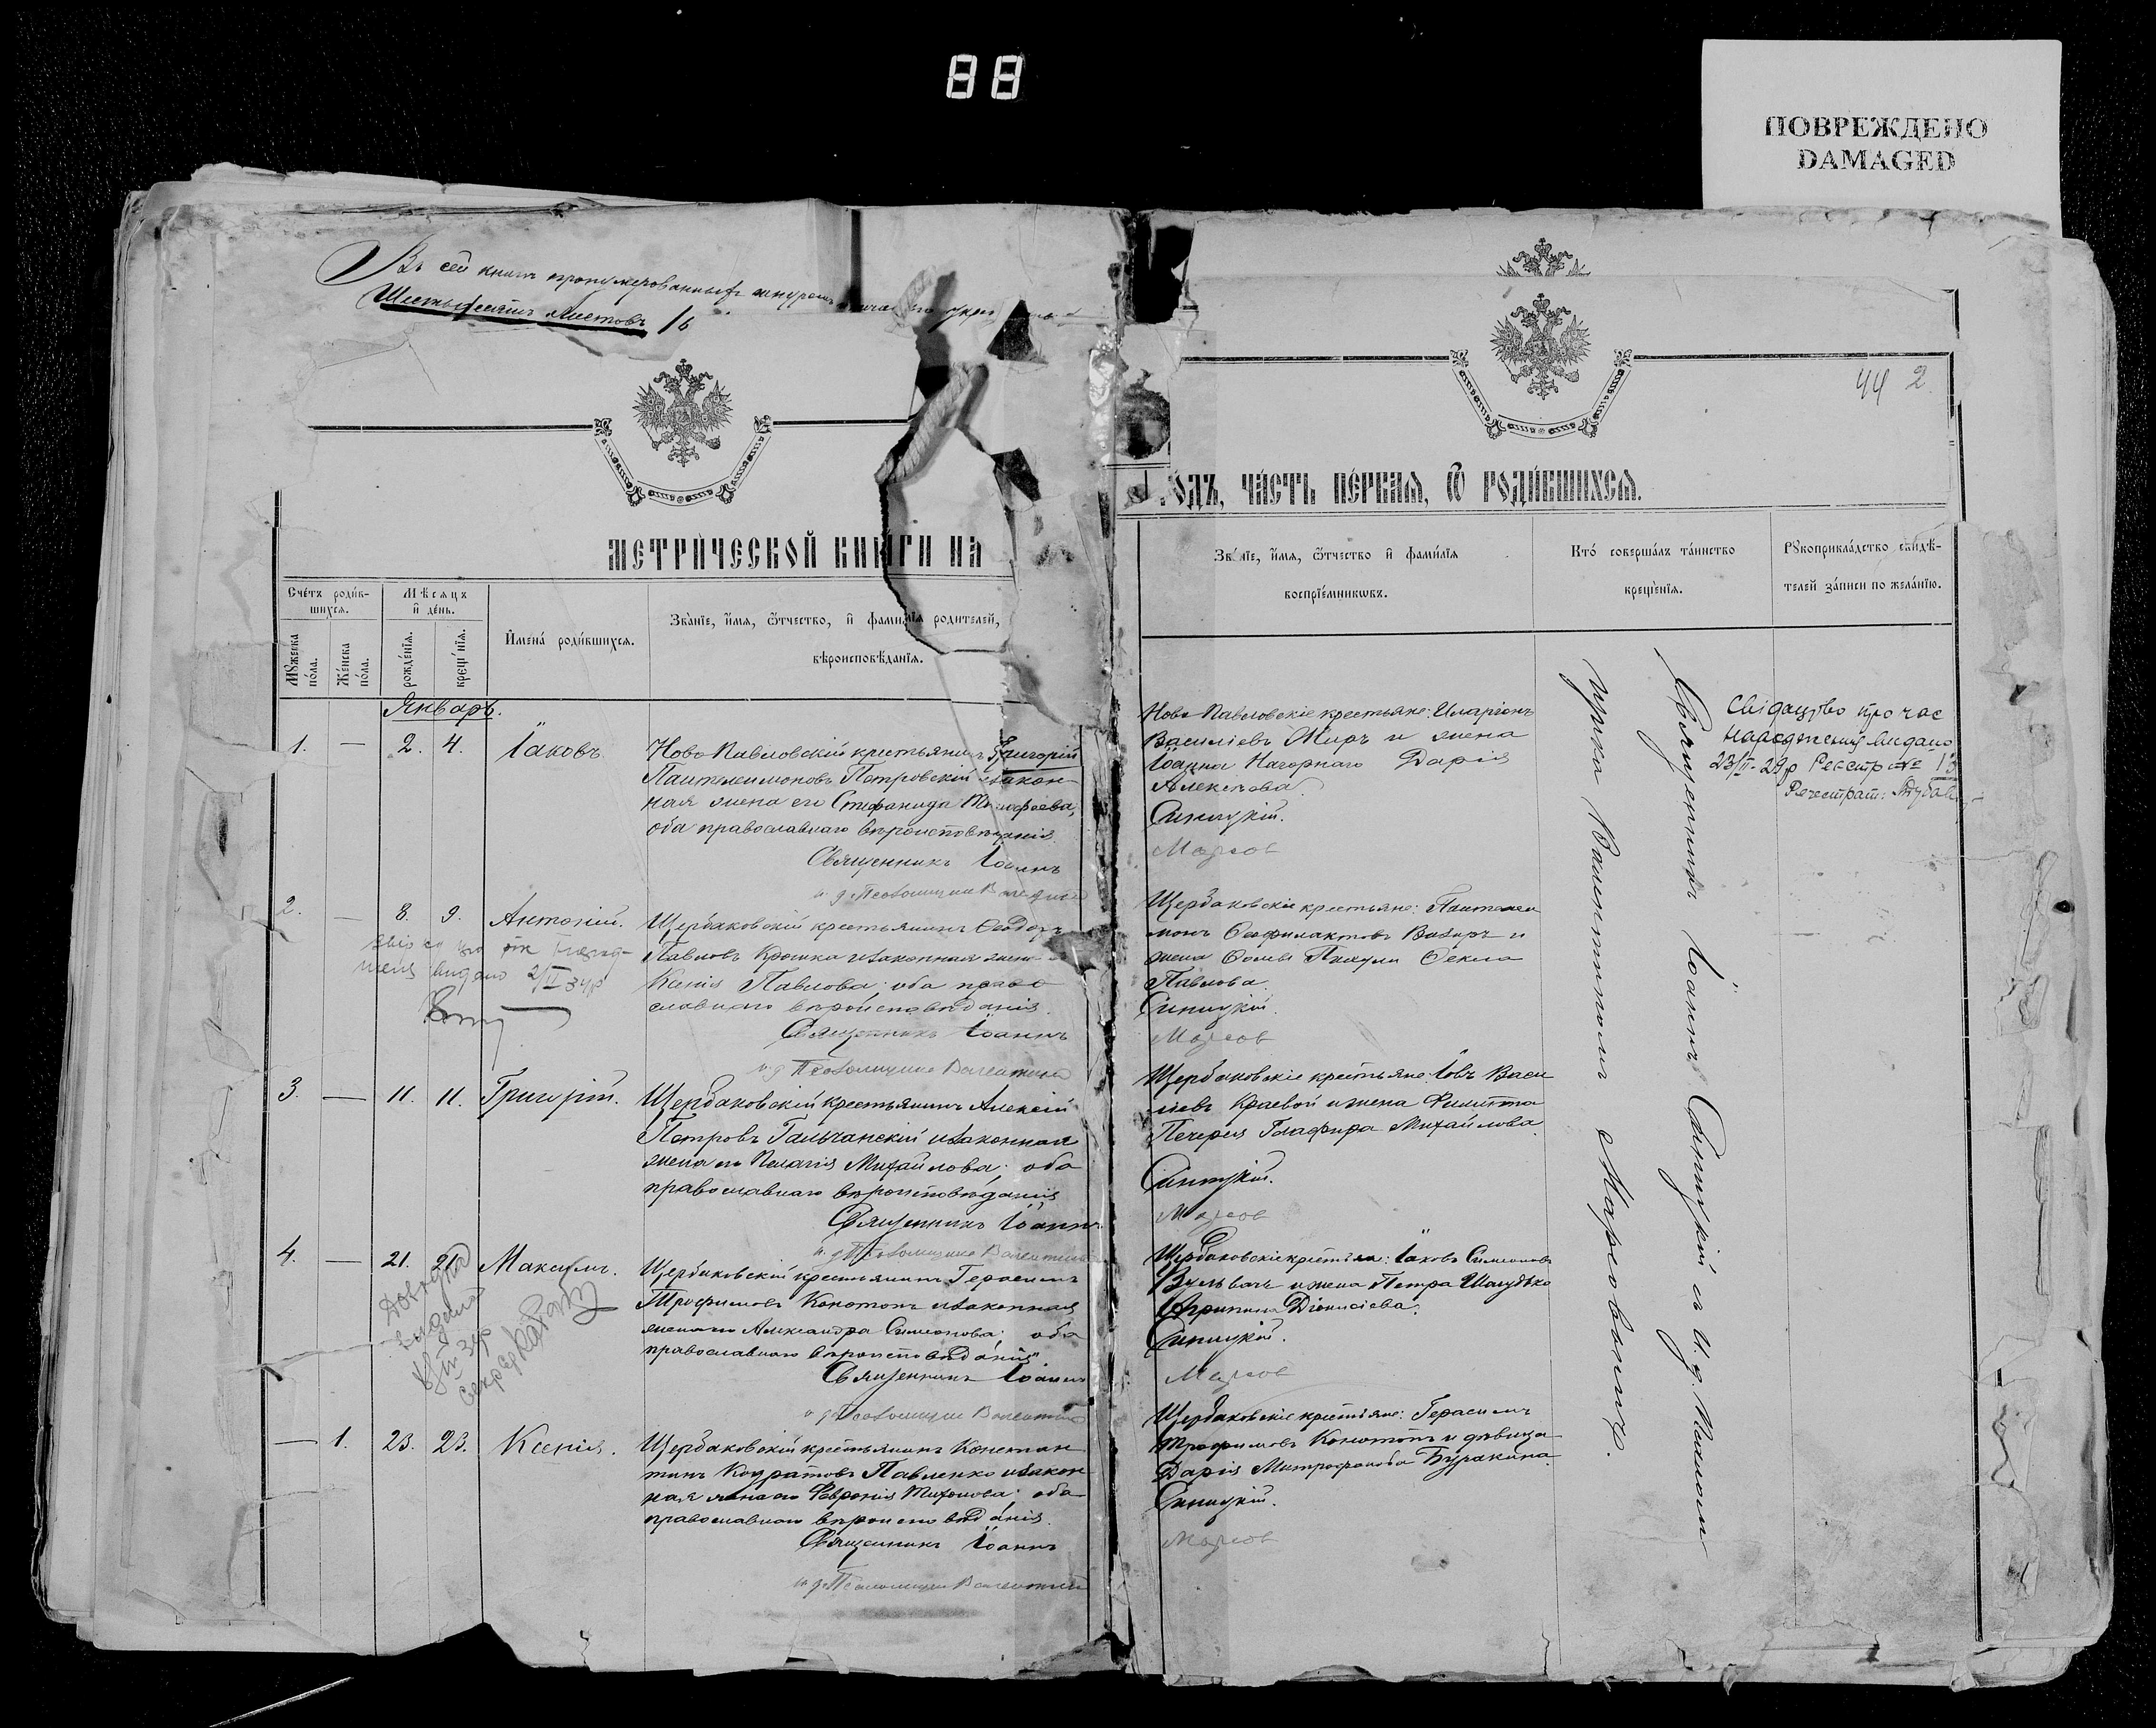 88
ПОВРЕЖДЕНО
DAMAGED
Въ сей книгѣ пронумерованныхъ
Шестьдесятъ Листовъ
44 2
МЕТРИЧЕСКОЙ КНИГИ НА
ГОДЪ, ЧАСТЬ ПЕРВАЯ, Ѿ РОДИВШИХСЯ.
Счетъ родив-
шихся.
Мужеска
пола.
Женска
пола.
Мѣсяцъ
и день.
рожденія.
крещенія.
Имена родившихся.
Званіе, имя, ѿтчество, и фамилія родителей,
вѣроисповѣданія.
Званіе, имя, ѿтчество и фамилія
воспріемниковъ.
Кто совершалъ таинство
крещенія.
Рукоприкладство свидѣ-
телей записи по желанію.
Январь.
1. — 2. 4. Іаковъ.
Ново-Павловскій крестьянинъ Григорій
Пантелеимоновъ Петровскій и закон-
ная жена его Стефанида
оба православнаго вѣроисповѣданія
Священникъ Іоаннъ
и. д. Псаломщика Валентинъ
Ново-Павловскіе крестьяне: Иларіонъ
Василіевъ Жиръ и жена
Іоанна Нагорнаго Дарія
Алексѣева.
Синицкій.
Марсов
Свідоцтво про час
народження видано
23/II-29р Реєстр № 13
Реєстрат:
2. — 8. 9. Антоній.
видано 2/II 34р
Щербаковскій крестьянинъ Ѳеодоръ
Павловъ Крошка и законная жена
Ксенія Павлова; оба право
славнаго вѣроисповѣданія.
Священникъ Іоаннъ
и. д. Псаломщика Валентинъ
Щербаковскіе крестьяне: Пантелеи
монъ Ѳеофилактовъ и
жена Ѳомы Ѳекла
Павлова.
Синицкій.
Марсов
3. — 11. 11. Григорій.
Щербаковскій крестьянинъ Алексій
Петровъ Гальчанскій и законная
жена его Пелагія Михайлова; оба
православнаго вѣроисповѣданія
Священникъ Іоаннъ
и. д. Псаломщика Валентинъ
Щербаковскіе крестьяне: Іовъ Васи
ліевъ Краевой и жена Филиппа
Печерея Глафира Михайлова.
Синицкій.
Марсов
4. — 21. 21. Максимъ.
Довідка
видана
секрет
Щербаковскій крестьянинъ Герасимъ
Трофимовъ Конотопъ и законная
жена его Александра Симеонова; оба
православнаго вѣроисповѣданія.
Священникъ Іоаннъ
и д Псаломщика Валентинъ
Щербаковскіе крестьяне: Іаковъ Симеоновъ
и жена Петра
Агрипина Діонисіева.
Синицкій.
Марсов
— 1. 23. 23. Ксенія.
Щербаковскій крестьянинъ Констан
тинъ Кодратовъ Павленко и закон
ная жена его Февронія Тихонова; оба
православнаго вѣроисповѣданія.
Священникъ Іоаннъ
и. д. Псаломщика Валентинъ
Щербаковскіе крестьяне: Герасимъ
Трофимовъ Конотопъ и дѣвица
Дарія Митрофанова Буракина.
Синицкій.
Марсов
Священникъ Іоаннъ Синицкій и И. д. Псалом
щика Валентинъ Марсовичъ.